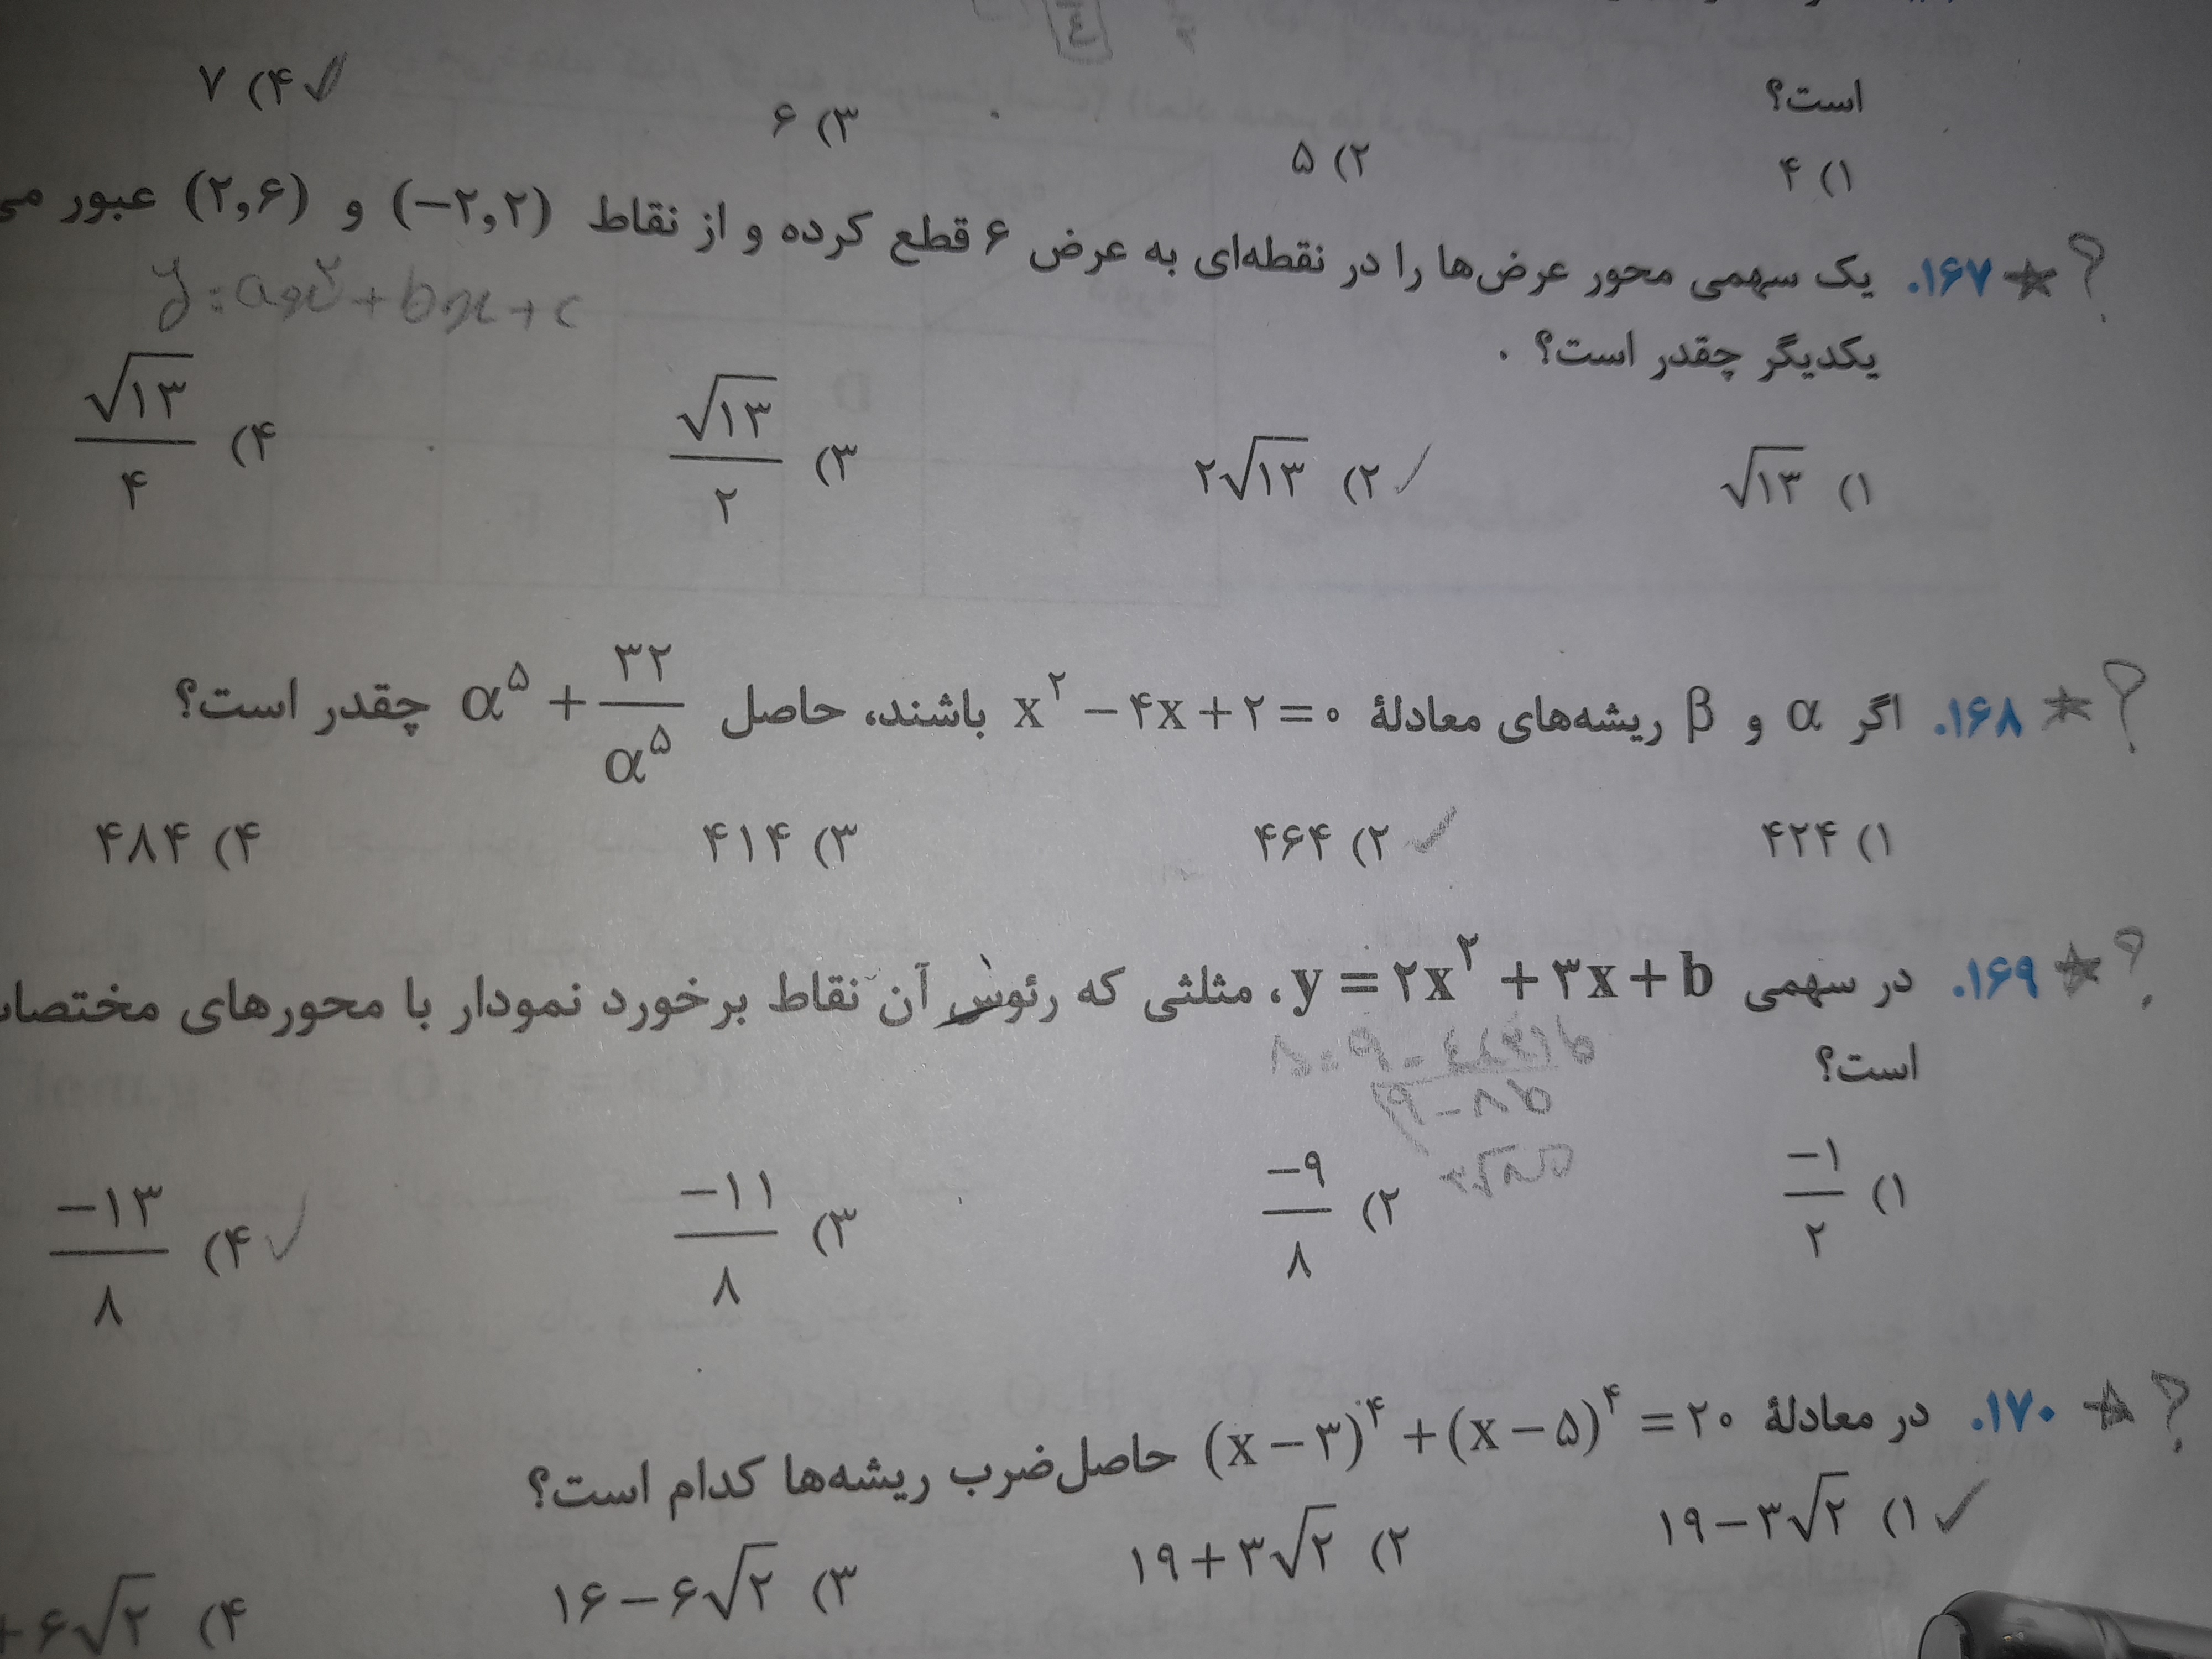 است؟
۱) ۴ ۲) ۵ ۳) ۶ ۴) ۷
۱۶۷. یک سهمی محور عرض‌ها را در نقطه‌ای به عرض ۶ قطع کرده و از نقاط (−۲,۲) و (۲,۶) عبور
y=ax²+bx+c
یکدیگر چقدر است؟
۱) √۱۳ ۲) ۲√۱۳ ۳) √۱۳/۲ ۴) √۱۳/۴
۱۶۸. اگر α و β ریشه‌های معادلهٔ x² − ۴x + ۲ = ۰ باشند، حاصل α⁵ + ۳۲/α⁵ چقدر است؟
۱) ۴۲۴ ۲) ۴۶۴ ۳) ۴۱۴ ۴) ۴۸۴
۱۶۹. در سهمی y = ۲x² + ۳x + b، مثلثی که رئوس آن نقاط برخورد نمودار با محورهای
است؟
۱) −۱/۲ ۲) −۹/۸ ۳) −۱۱/۸ ۴) −۱۳/۸
۱۷۰. در معادلهٔ (x − ۳)⁴ + (x − ۵)⁴ = ۲۰ حاصل‌ضرب ریشه‌ها کدام است؟
۱) ۱۹ − ۳√۲ ۲) ۱۹ + ۳√۲ ۳) ۱۶ − ۶√۲ ۴) + ۶√۲